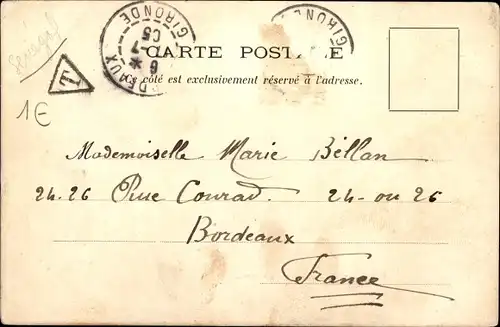 Sénégal
GIRONDE
BORDEAUX
6 * 7
05
GIRONDE
CARTE POSTALE
Ce côté est exclusivement réservé à l'adresse.
T
1€
Mademoiselle Marie Béllan
24.26 Rue Conrad. 24- ou 26
Bordeaux
France